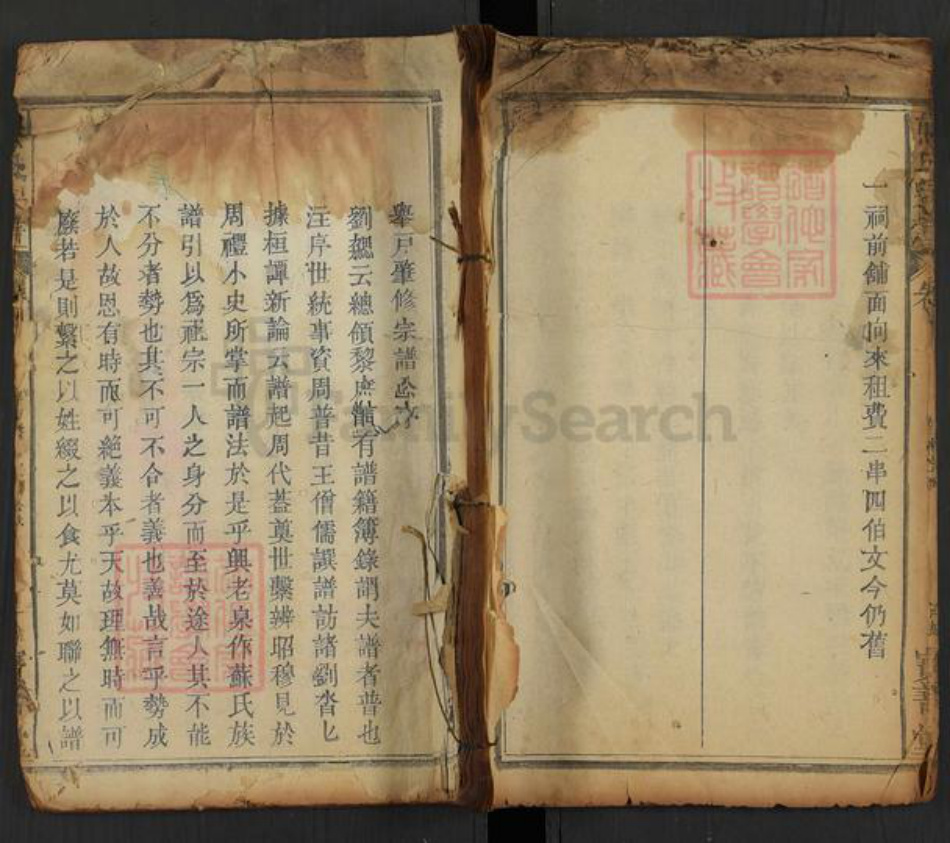 一祠前舖面向來租費二串四伯文今仍舊
舉戶肇修宗譜總序
劉勰云總領黎庶則有譜籍簿錄謂夫譜者普也
注序世統事資周普昔王僧儒譔譜訪諸劉沓乚
據桓譚新論云譜起周代葢奠世繫辨昭穆見於
周禮小史所掌而譜法於是乎興老泉作蘇氏族
譜引以爲祖宗一人之身分而至於途人其不能
不分者勢也其不可不合者義也善哉言乎勢成
於人故恩有時而可絕義本乎天故理無時而可
廢若是則繫之以姓綴之以食尤莫如聯之以譜
FamilySearch